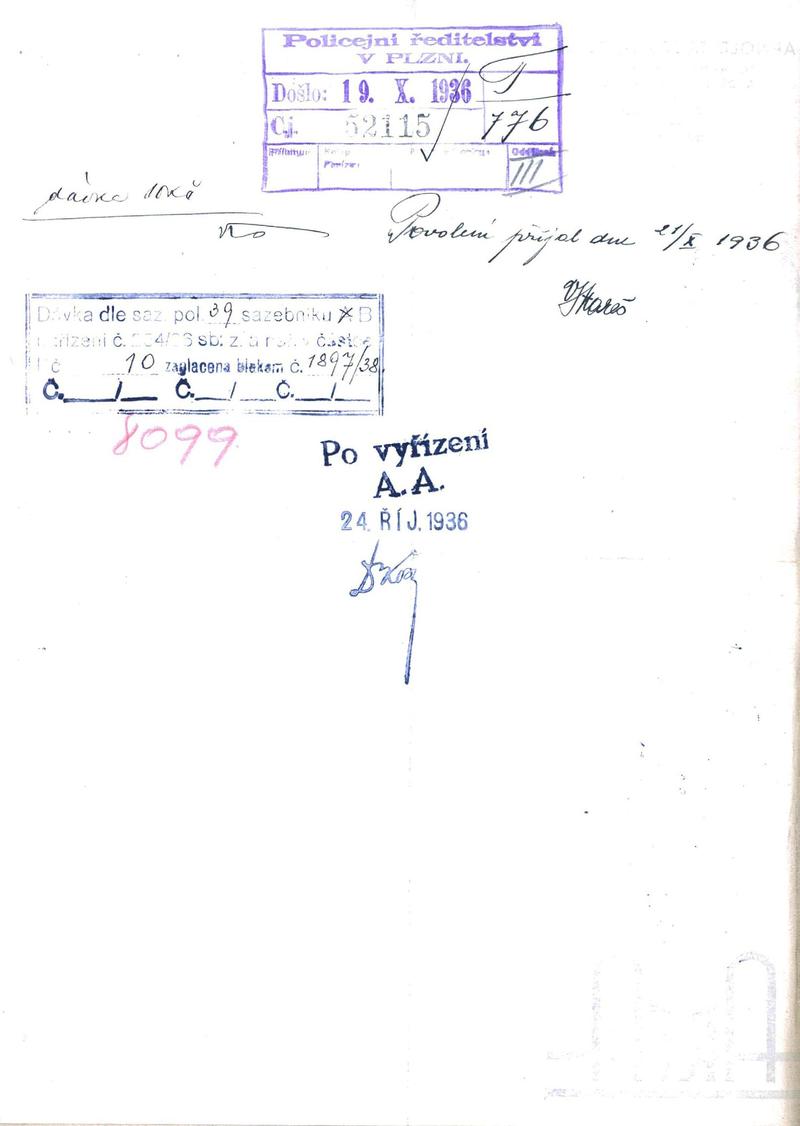 Policejní ředitelství
V PLZNI.
Došlo: 19. X. 1936
Čj. 52115 776
Oddělení
III
dávka 10 Kč
Povolení přijal dne 21/X 1936
Dávka dle saz. pol. 39 sazebníku B
nařízení č. 254/26 sb: z. a n. v částce
Kč 10 zaplacena blokem č. 1897/38.
Č.___/___ Č.___/___ Č.___/___
8099
Po vyřízení
A.A.
24. ŘÍJ. 1936